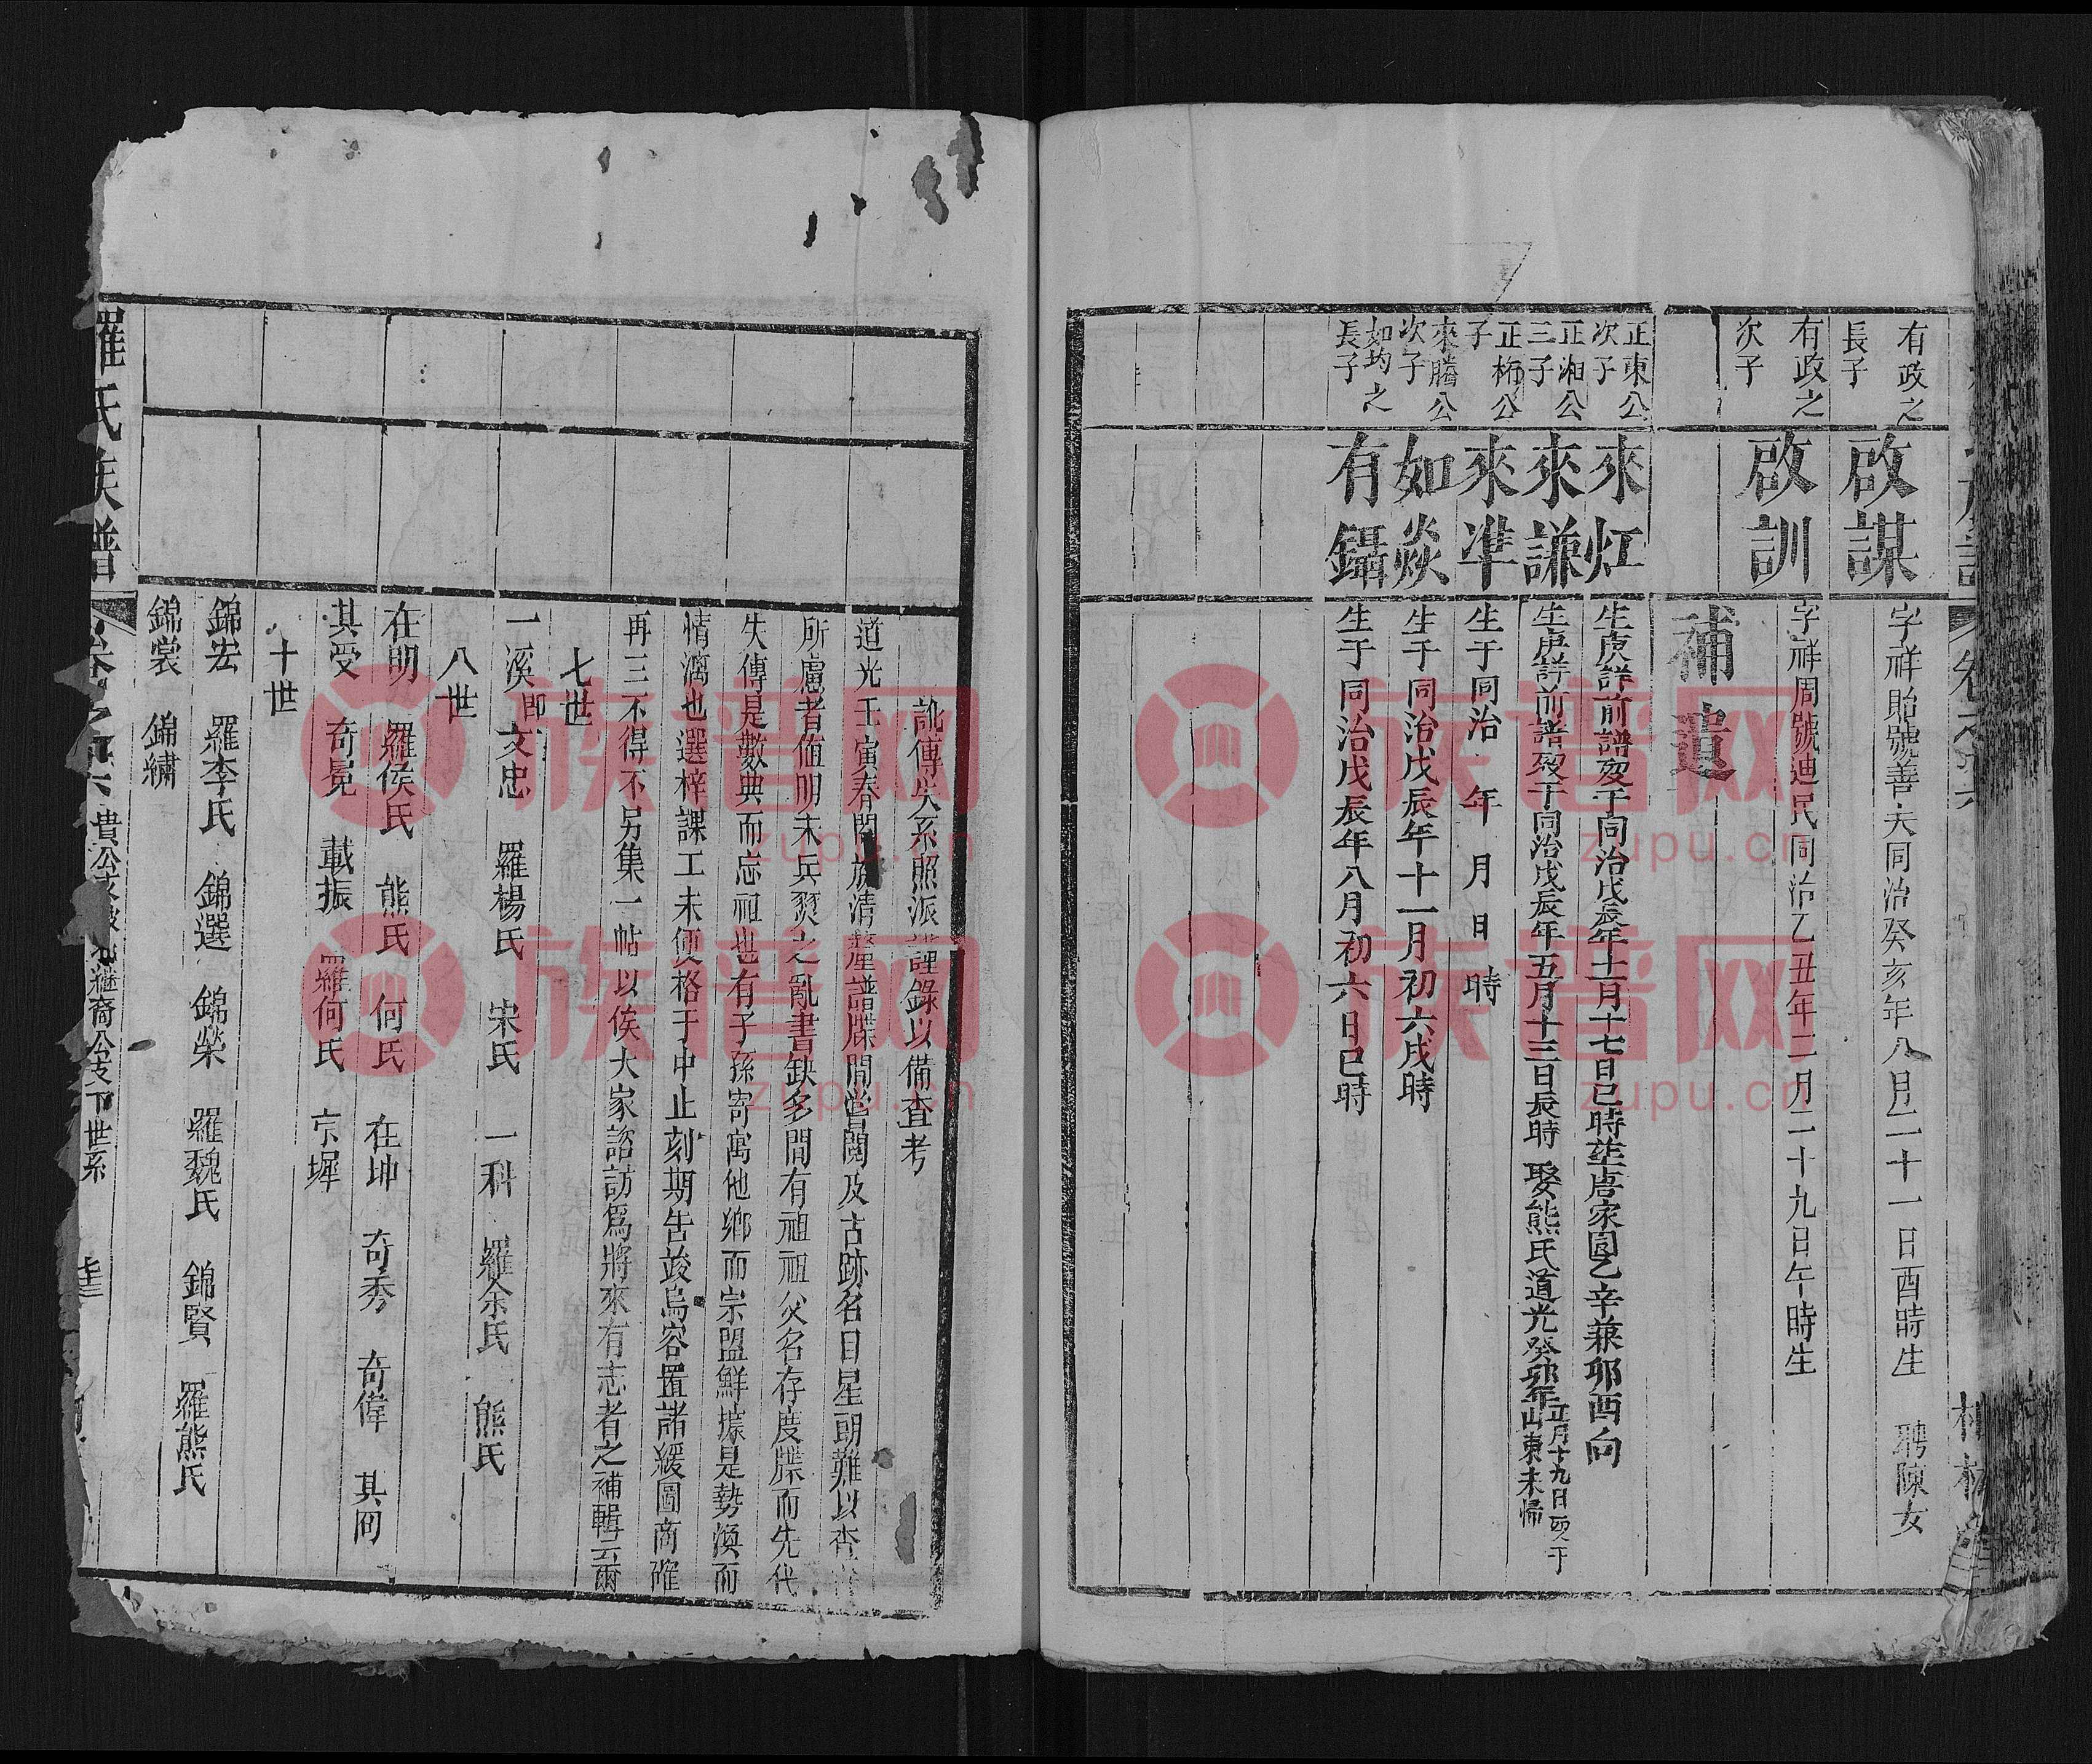 有政之長子
啟謀
字祥貽號善夫同治癸亥年八月二十一日酉時生 聘陳女
有政之次子
啟訓
字祥周號迪民同治乙丑年二月二十九日午時生
補遺
正東公次子
來灴
生庚詳前譜歿于同治戊辰年十一月十七日巳時塟唐家園乙辛兼卯酉向
正湘公三子
來謙
生庚詳前譜歿于同治戊辰年五月十三日辰時 娶熊氏道光癸卯年正月十九日歿于山東未歸
正柘公子
來準
生于同治 年 月 日 時
來騰公次子
如焱
生于同治戊辰年十一月初六戌時
如均之長子
有鑷
生于同治戊辰年八月初六日巳時
訛傳失系照派謹錄以備查考
道光壬寅春閤族清釐譜牒間嘗閱及古跡名目星朗難以查
所慮者值明末兵燹之亂書缺多間有祖祖父名存度牒而先代
失傳是數典而忘祖也有子孫寄寓他鄉而宗盟鮮據是勢渙而
情漓也選梓課工未便格于中止刻期告竣烏容置諸緩圖商確
再三不得不另集一帖以俟大家諮訪為將來有志者之補輯云爾
七世
一溪即文忠 羅楊氏 宋氏 一科 羅余氏 熊氏
八世
在明 羅侯氏 熊氏 何氏 在坤 奇秀 奇偉 其冏
其受 奇冕 載振 羅何氏 宗墀
十世
錦宏 羅李氏 錦選 錦榮 羅魏氏 錦賢 羅熊氏
錦裳 錦繡
羅氏族譜
卷之 六
繼裔公支下世系